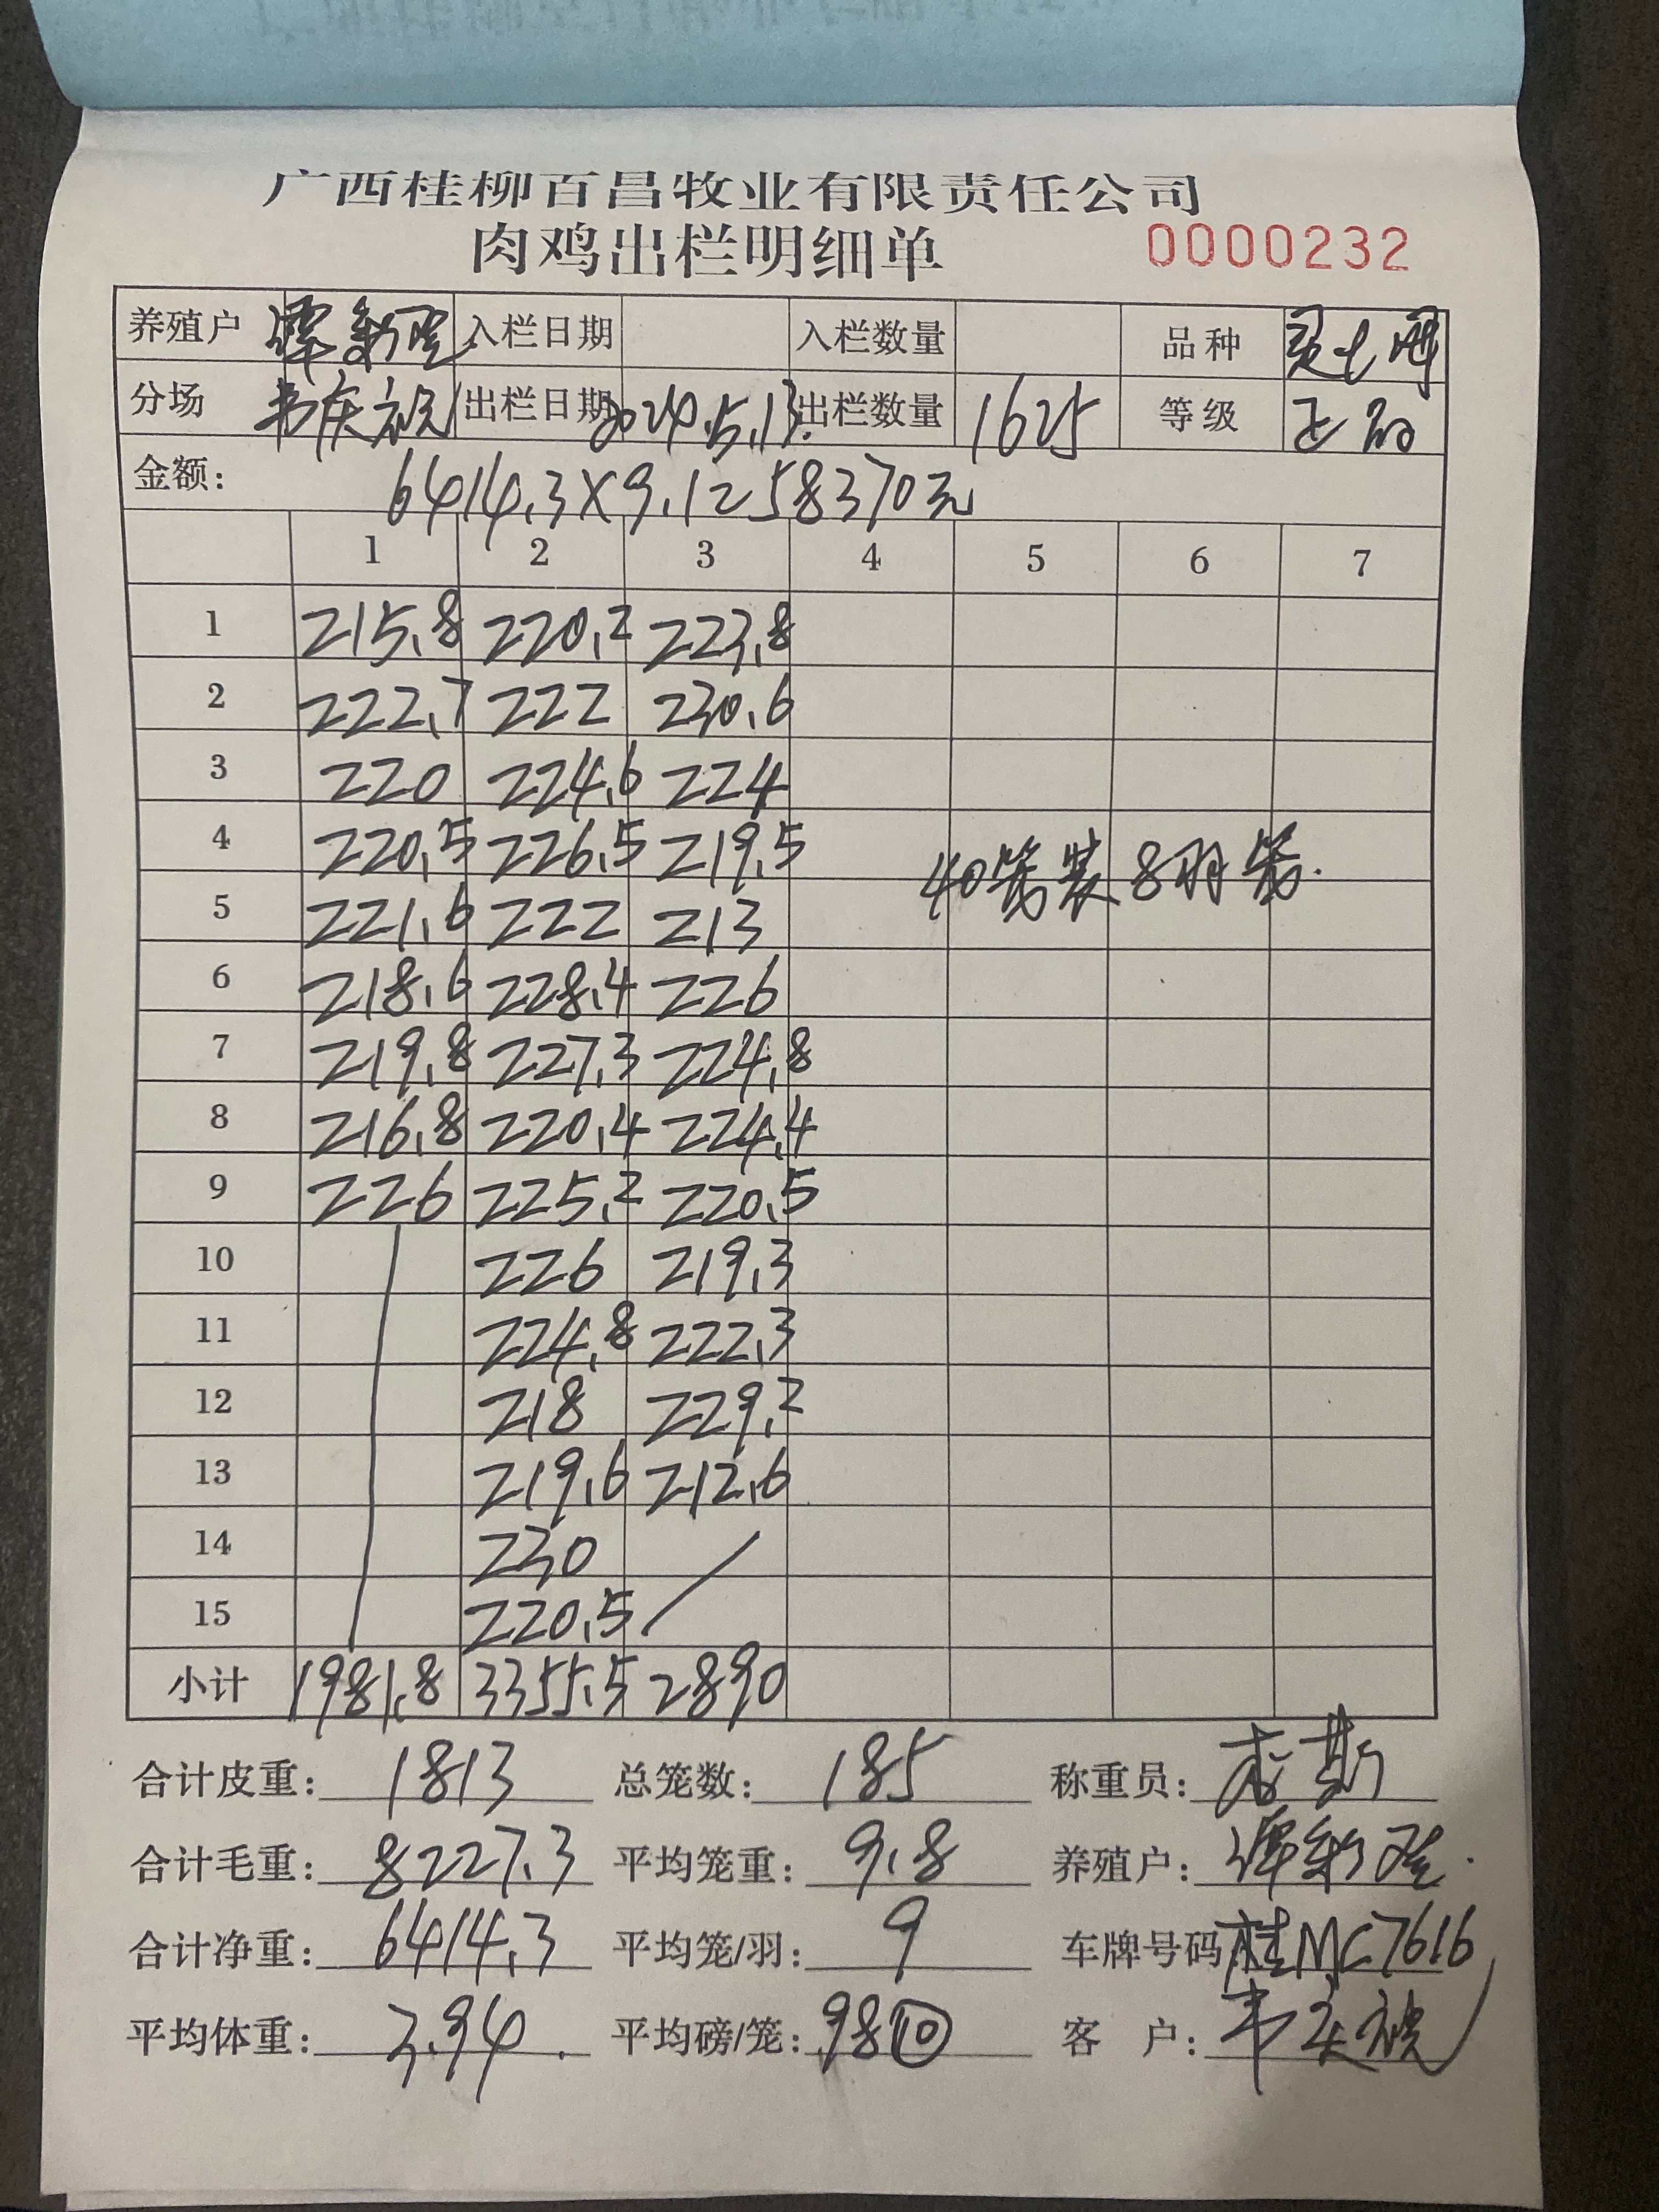 广西桂柳百昌牧业有限责任公司
肉鸡出栏明细单 0000232
养殖户 入栏日期 入栏数量 品种
分场 韦庆 出栏日期 2024.5.13. 出栏数量 1625 等级 正品
金额: 6414.3×9.1 = 58370元
1 2 3 4 5 6 7
1 215.8 220.2 223.8
2 222.7 222 230.6
3 220 224.6 224
4 220.5 226.5 219.5 40笼装8羽笼.
5 221.6 222 213
6 218.6 228.4 226
7 219.8 227.3 224.8
8 216.8 220.4 224.4
9 226 225.2 220.5
10 226 219.3
11 224.8 222.3
12 218 229.2
13 219.6 212.6
14 230
15 220.5
小计 1981.8 3355.5 2890
合计皮重: 1813 总笼数: 185 称重员:
合计毛重: 8227.3 平均笼重: 9.8 养殖户:
合计净重: 6414.3 平均笼/羽: 9 车牌号码 桂MC7616
平均体重: 3.94. 平均磅/笼: 98⑩ 客 户: 韦庆